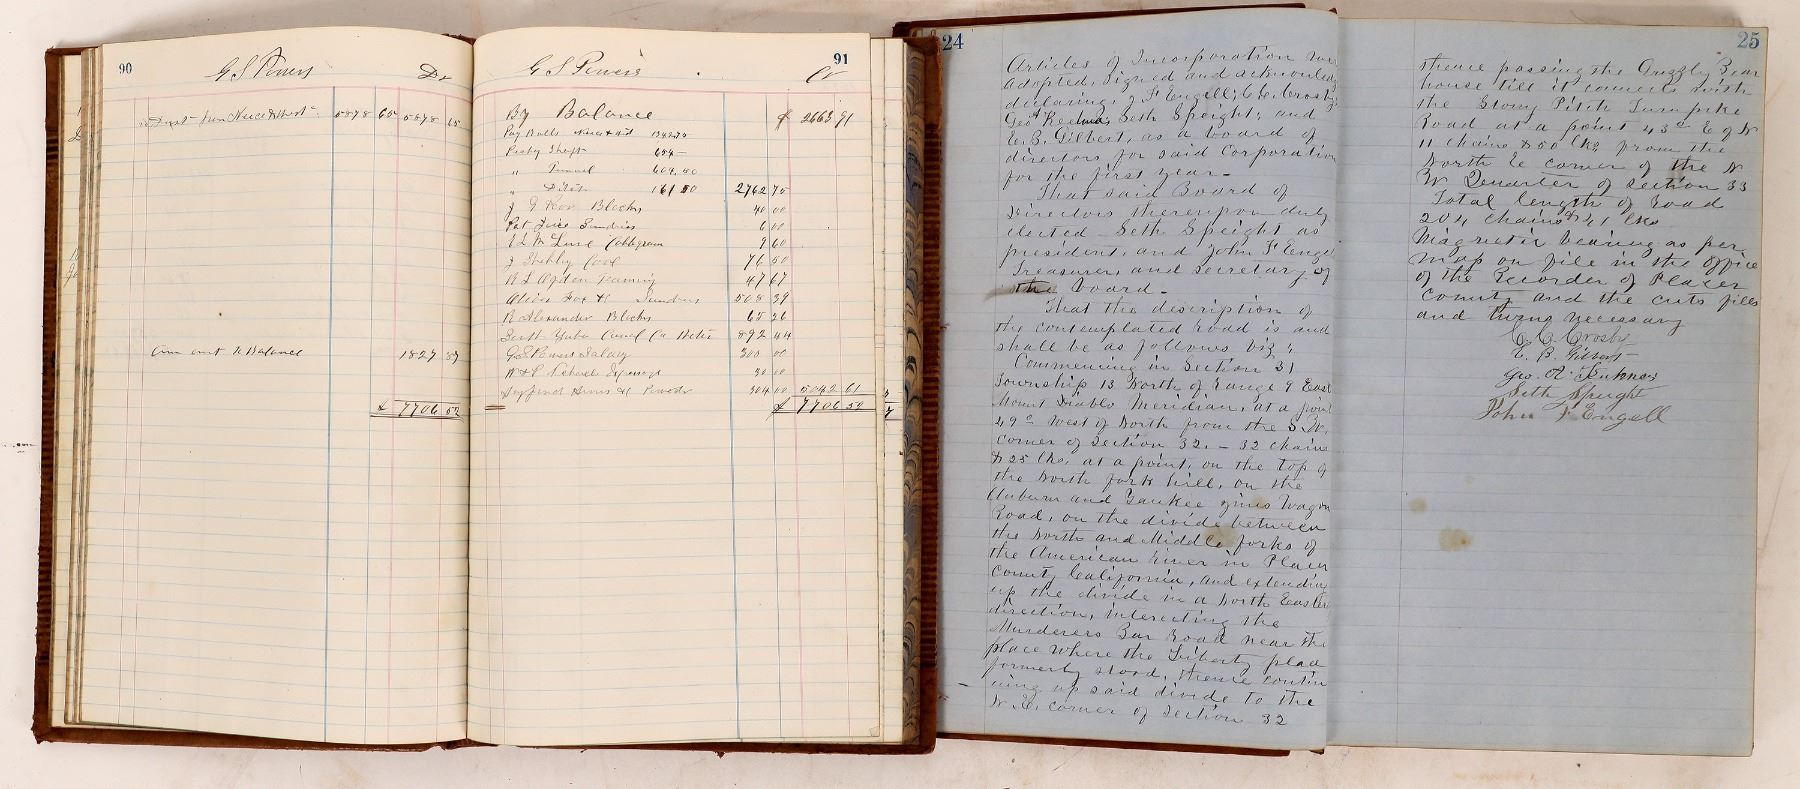 90
G S Powers Dr
5878 65 5878 65
Am amt to Balance 1827 87
$ 7706 52
91
G S Powers Cr
By Balance $ 2663 91
Pay Rolls 1342.75
Shaft 654 –
" Tunnel 604.50
" Ditch 161 50 2762 75
J G Blocks 40 00
Pat Sundries 6 00
9 60
J Shebley Coal 76 50
R L Ogden 47 67
Sundries 508 39
R Alexander Blocks 65 26
South Yuba Canal Co Water 892 44
G S Powers Salary 300 00
Expenses 30 00
Powder 304 00 5042 61
$ 7706 52
24
Articles of Incorporation were
adopted, signed and acknowledg
declaring J F Engell, C C Crosby,
Geo Seth Speight, and
E. B. Gilbert, as a board of
directors for said Corporation
for the first year –
That said Board of
Directors thereupon duly
elected Seth Speight as
president, and John F Engel
Treasurer, and Secretary of
the board –
That the discription of
the contemplated road is and
shall be as follows viz;
Commencing in Section 31
Township 13 North of range 9 East
Mount Diablo Meridian, at a point
49° West of North from the S. W.
corner of Section 32. – 32 chains
& 25 lks. at a point, on the top of
the North fork hill, on the
Auburn and Yankee Jims Wagon
Road, on the divide between
the North and Middle forks of
the American River in Placer
County California, and extending
up the divide in a North Easter
direction, intersecting the
Murderers Bar Road near the
place where the Liberty
formerly stood, thence contin
uing up said divide to the
N. E. corner of Section 32
25
thence passing the Grizzly Bear
house till it connects with
the Stony Pitch Turnpike
Road at a point 43° E of N
11 chains & 50 lks from the
North E corner of the N
W Quarter of Section 33
Total length of road
204 chains & 41 lks
Magnetic bearing as per
map on file in the office
of the Recorder of Placer
County and the cuts fills
and turns necessary
C. C. Crosby
E. B. Gilbert
Geo. A.
Seth Speight
John F Engell